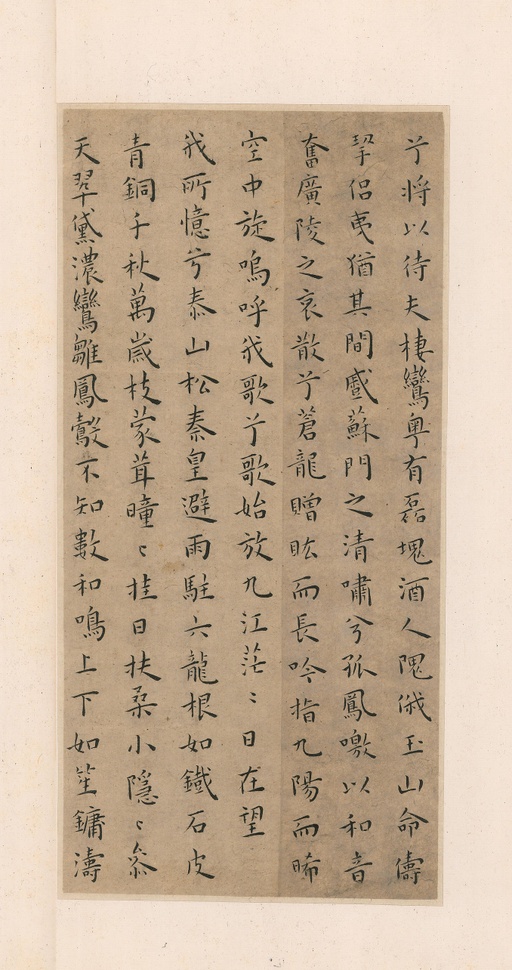 兮將以待夫棲鸞粵有磊塊酒人隗俄玉山命儔
挈侶夷猶其間感蘇門之清嘯兮孤鳳噭以和音
奮廣陵之哀散兮蒼龍贈肱而長吟指九陽而晞
空中旋嗚呼我歌兮歌始放九江茫〻日在望
我所憶兮泰山松秦皇避雨駐六龍根如鐵石皮
青銅千秋萬歲枝蒙茸曈〻挂日扶桑小隱〻參
天翠黛濃鸞雛鳳鷇不知數和鳴上下如笙鏞濤